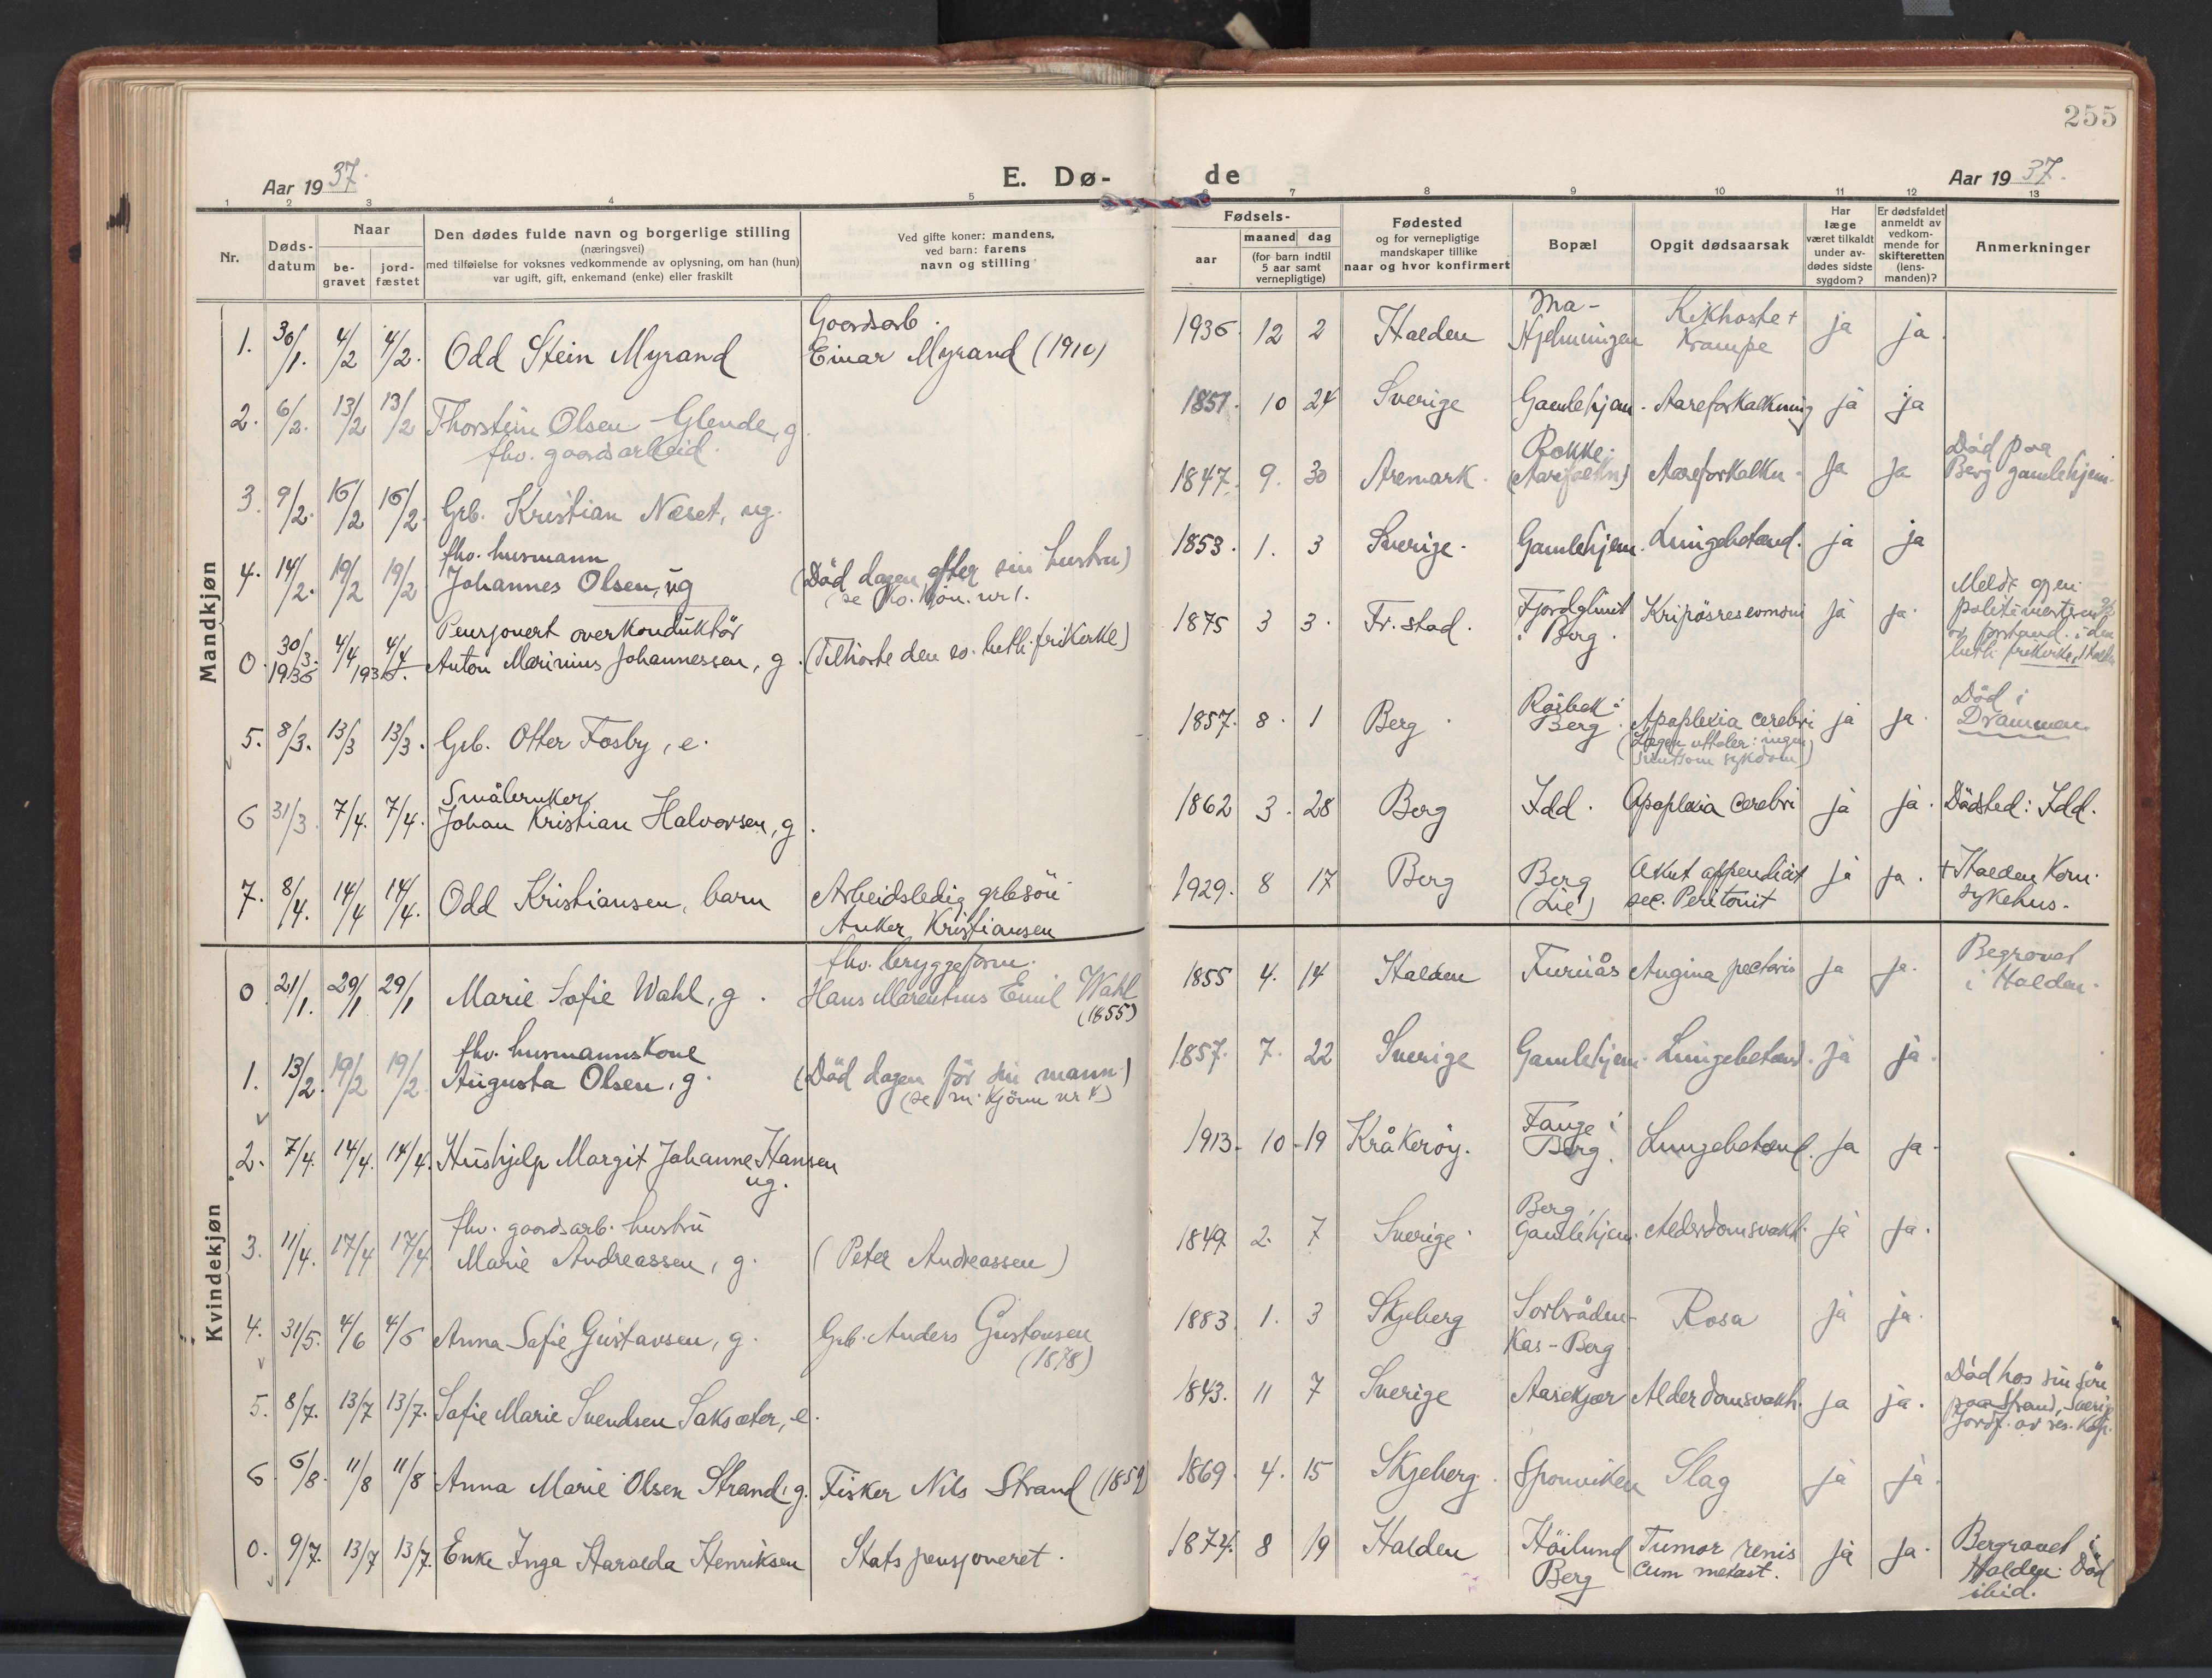 255
Aar 19 37.
E. Dø-
de
Aar 19 37.
1 2 3 4 5
7 8 9 10 11 12 13
Nr.
Døds-
datum
Naar
be-
gravet
jord-
fæstet
Den dødes fulde navn og borgerlige stilling
(næringsvei)
med tilføielse for voksnes vedkommende av oplysning, om han (hun)
var ugift, gift, enkemand (enke) eller fraskilt
Ved gifte koner: mandens,
ved barn: farens
navn og stilling
Fødsels-
aar
maaned dag
(for barn indtil
5 aar samt
vernepligtige)
Fødested
og for vernepligtige
mandskaper tillike
naar og hvor konfirmert
Bopæl
Opgit dødsaarsak
Har
læge
været tilkaldt
under av-
dødes sidste
sygdom?
Er dødsfaldet
anmeldt av
vedkom-
mende for
skifteretten
(lens-
manden)?
Anmerkninger
Mandkjøn
1. 30/1. 4/2 4/2. Odd Stein Myrand
Goardsarb.
Einar Myrand (1910)
2. 6/2. 13/2 13/2 Thorstein Olsen Glende, g
fhv. goardsarbeid.
3. 9/2. 16/2 16/2. Grb. Kristian Næset, ug.
4. 14/2. 19/2 19/2
fhv. husmann
Johannes Olsen, ug
(Död dagen efter sin hustru)
(se kv. kjön. nr 1.
0. 30/3. 1936 4/4 4/4 1936.
Pensjonert overkonduktör
Anton Marinius Johannessen, g.
(Tilhörte den ev. luth. frikirke)
5. 8/3. 13/3 13/3. Grb. Otter Fosby, e.
6 31/3. 7/4. 7/4.
Småbruker
Johan Kristian Halvorsen, g.
7. 8/4. 14/4 14/4. Odd Kristiansen, barn
Arbeidsledig grbsön
Anker Kristiansen
Kvindekjøn
0 21/1. 29/1 29/1 Marie Sofie Wahl, g.
fhv. bryggeform.
Hans Marentius Emil Wahl
(1855)
1. 13/2. 19/2 19/2.
fhv. husmannskone
Augusta Olsen, g.
(Död dagen för sin mann)
(se m. kjönn nr 4)
2. 7/4. 14/4. 14/4. Hushjelp Margit Johanne Hansen
ug.
3. 11/4. 17/4 17/4
fhv. goardsarb. hustru
Marie Andreassen, g.
(Peter Andreassen)
4. 31/5. 4/6 4/6 Anna Sofie Gustavsen, g.
Grb. Anders Gustavsen
(1878)
5. 8/7. 13/7 13/7. Sofie Marie Svendsen Saksæter, e.
6 6/8. 11/8 11/8 Anna Marie Olsen Strand, g. Fisker Nils Strand (1859
0. 9/7. 13/7 13/7. Enke Inga Haralda Henriksen Statspensjoneret.
1936. 12 2 Halden
Kikhoste +
Krampe
ja ja.
1851. 10 24 Sverige Gamlehjem. Aareforkalkning ja ja
1847. 9. 30 Aremark.
Rokke.
Aareforkalkn. Ja Ja
Död paa
Berg gamlehjem.
1853. 1. 3 Sverige. Gamlehjem. Lungebetænd. ja ja
1875 3 3. Fr.stad.
Fjordglimt
i Berg.
ja ja.
1857. 8. 1 Berg.
Berg. Apoplexia cerebri
ja ja.
Död i
Drammen.
1862 3. 28 Berg Idd. Apoplexia cerebri ja ja. Dödsted: Idd.
1929. 8 17 Berg
Berg
(Lie)
Akut appendicit
sec. Peritonit
ja ja.
+ Halden Kom.
sykehus.
1855 4. 14 Halden Furuås Angina pectoris ja ja.
Begravet
i Halden.
1857. 7. 22 Sverige Gamlehjem. Lungebetænd. ja ja.
1913. 10 19 Kråkeröy.
Fange i
Berg.
Lungebetænd. ja ja.
1849. 2. 7 Sverige.
Berg
Gamlehjem. Alderdomsvakh. ja ja.
1883. 1. 3 Skjeberg
Sorbråden-
Kas-Berg
Rosa ja ja.
1843. 11 7 Sverige Aarekjær Alderdomsvakh. ja ja.
Död hos sin sön
paa Strand, Sverig
Jordf. av res. Kap.
1869. 4. 15 Skjeberg. Sponviken Slag ja ja.
1874. 8 19 Halden
Höilund
Berg
Tumor renis
cum metast.
ja ja.
Bergravet i
Halden. Död
ibid.